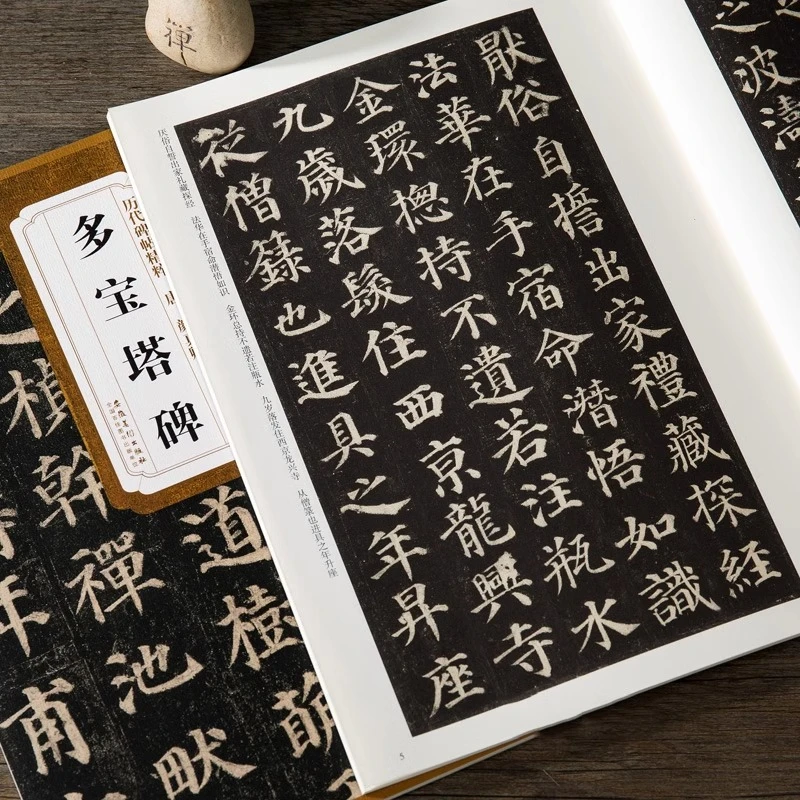 禪
之波濤
厭俗自誓出家禮藏探經
法華在手宿命潛悟如識
金環揔持不遺若注瓶水
九歲落髮住西京龍興寺
從僧籙也進具之年昇座
厌俗自誓出家礼藏探经 法华在手宿命潜悟如识 金环总持不遗若注瓶水 九岁落发住西京龙兴寺 从僧箓也进具之年升座
5
历代碑帖精粹
多宝塔碑
安徽美术出版社
全国百佳图书出版单位
道樹萌
之楨幹禪池畎
年甫